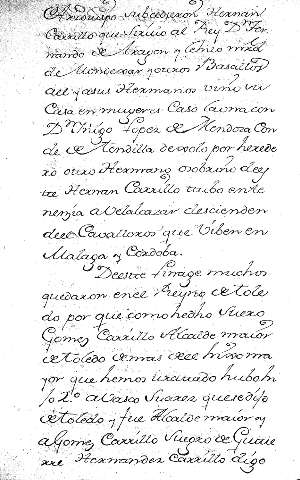 subcedieron Hernan
Carrillo que sirvio al Rey Dn. Fer
nando de Aragon y
de y otros Basallos
del y a sus Hermanos vino su
Casa en mugeres Caso la una con
Dn. Yñigo Lopez de Mendoza Con
de de Tendilla por herede
ro otro Hermano o sobrino de es
te Hernan Carrillo tubo en te
nenzia a Velalcasar descienden
de el Cavalleros que viben en
Malaga y Cordoba.
De este linage muchos
quedaron en el Reyno de tole
do por que como hedho Suero
Gomez Carrillo Alcalde maior
de toledo de mas de el hijo ma
yor que hemos tratado hubo hi
jo 2º a Vasco Suarez que se dijo
de toledo y fue Alcalde maior y
a Gomez Carrillo Suegro de
Hernandez Carrillo digo